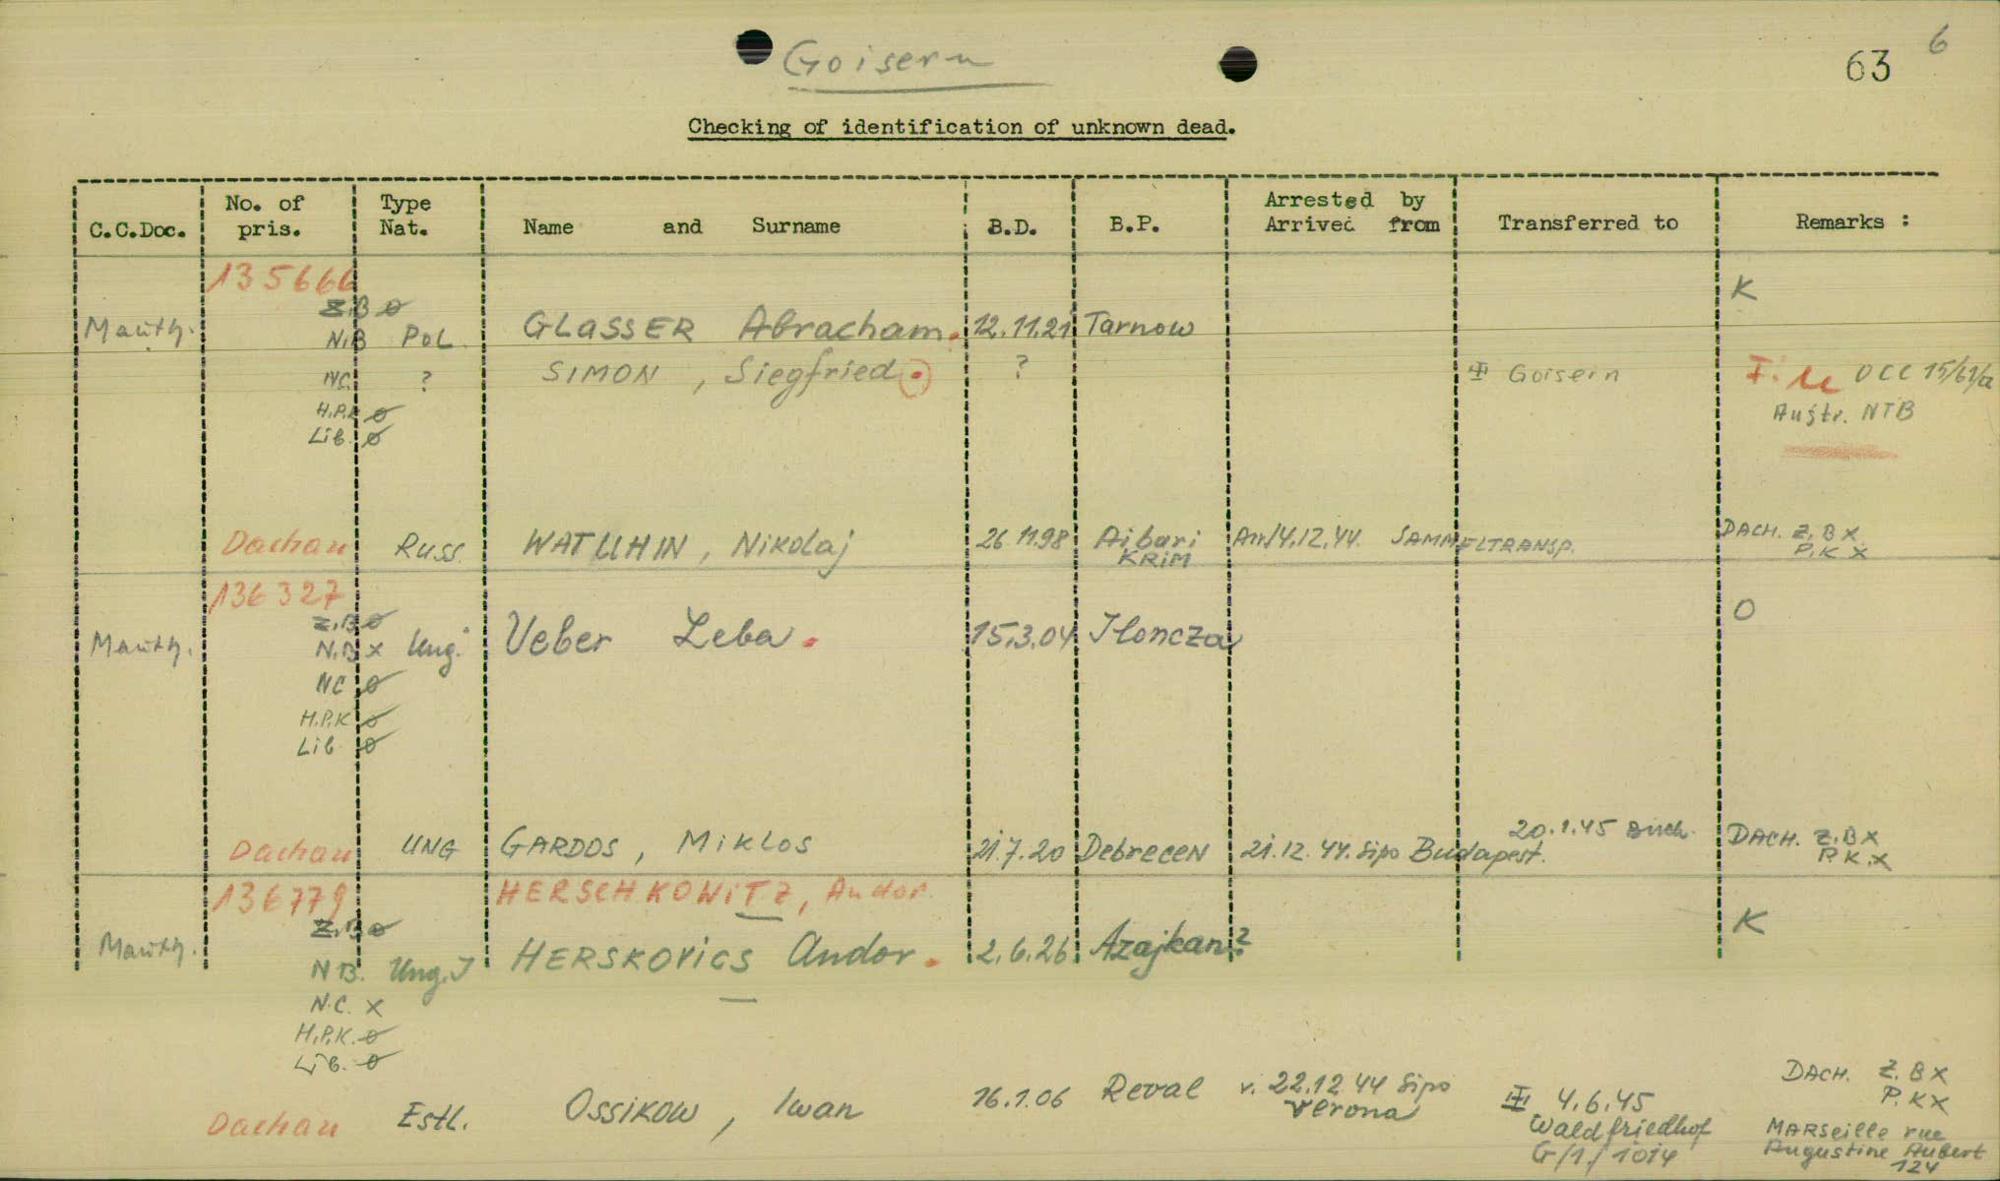 Goisern
6
63
Checking of identification of unknown dead.
C.C.Doc. No. of pris. Type Nat. Name and Surname B.D. B.P. Arrested by Arrived from Transferred to Remarks :
135666 K
Z.B ø
Mauth. N.B Pol. GLASSER Abracham. 12.11.21 Tarnow
NC. ? SIMON , Siegfried . ? Goisern File OCC 15/61/a
H.P.K ø Austr. NTB
Lib. ø
Dachau Russ. WATUHIN , Nikolaj 26.11.98 Aibari KRIM 14.12.44. SAMMELTRANSP. DACH. Z.B X
P.K X
136327 O
Z.B ø
Mauth. N.B x Ung. Veber Leba . 15.3.04 Iloncza
NC ø
H.P.K ø
Lib. ø
20.1.45 Buch.
Dachau UNG GARDOS , MIKLOS 21.7.20 Debrecen 21.12.44. Sipo Budapest. DACH. Z.B X
P.K. X
136779 HERSCHKOWITZ, Andor K
Z.B ø
Mauth. HERSKOVICS Andor . 2.6.26 Azajkan ?
N B. Ung.J
N.C. X
H.P.K. ø
Lib. ø
Dachau Estl. Ossikow , Iwan 16.1.06 Reval v. 22.12.44 Sipo Verona 4.6.45
Waldfriedhof
G/1/1014
DACH. Z.B X
P.K X
MARSeille rue
Augustine Aubert
124